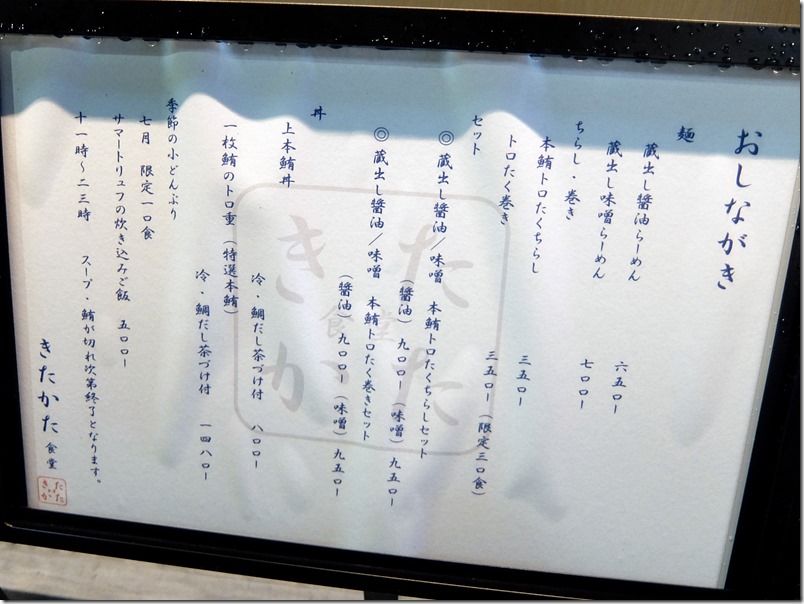 おしながき
麺
蔵出し醤油らーめん 六五〇ー
蔵出し味噌らーめん 七〇〇ー
ちらし・巻き
本鮪トロたくちらし 三五〇ー
トロたく巻き 三五〇ー(限定三〇食)
セット
◎ 蔵出し醤油/味噌 本鮪トロたくちらしセット
(醤油)九〇〇ー(味噌)九五〇ー
◎ 蔵出し醤油/味噌 本鮪トロたく巻きセット
(醤油)九〇〇ー(味噌)九五〇ー
丼
上本鮪丼 冷・鯛だし茶づけ付 八〇〇ー
一枚鮪のトロ重(特選本鮪) 冷・鯛だし茶づけ付 一四八〇ー
季節の小どんぶり
七月 限定一〇食
サマートリュフの炊き込みご飯 五〇〇ー
十一時〜二三時 スープ・鮪が切れ次第終了となります。
きたかた 食堂
きたかた
きたかた 食堂